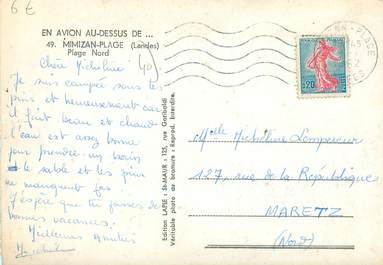 6€
EN AVION AU-DESSUS DE ...
49. MIMIZAN-PLAGE (Landes)
Plage Nord
40
Chère Micheline
Je suis campée sous les
pins et heureusement car
il fait beau et chaud
l'eau est assez bonne
pour prendre un bain
le sable et les pins
ne manquent pas
J'espère que tu passes de
bonnes vacances.
Meilleures Amitiés
Edition LAPIE : St-MAUR : 125, rue Garibaldi
Véritable photo au bromure : Reprod. Interdite.
PLAGE
0,20
Melle Micheline Lempereur
127, rue de la République
MARETZ
(Nord)